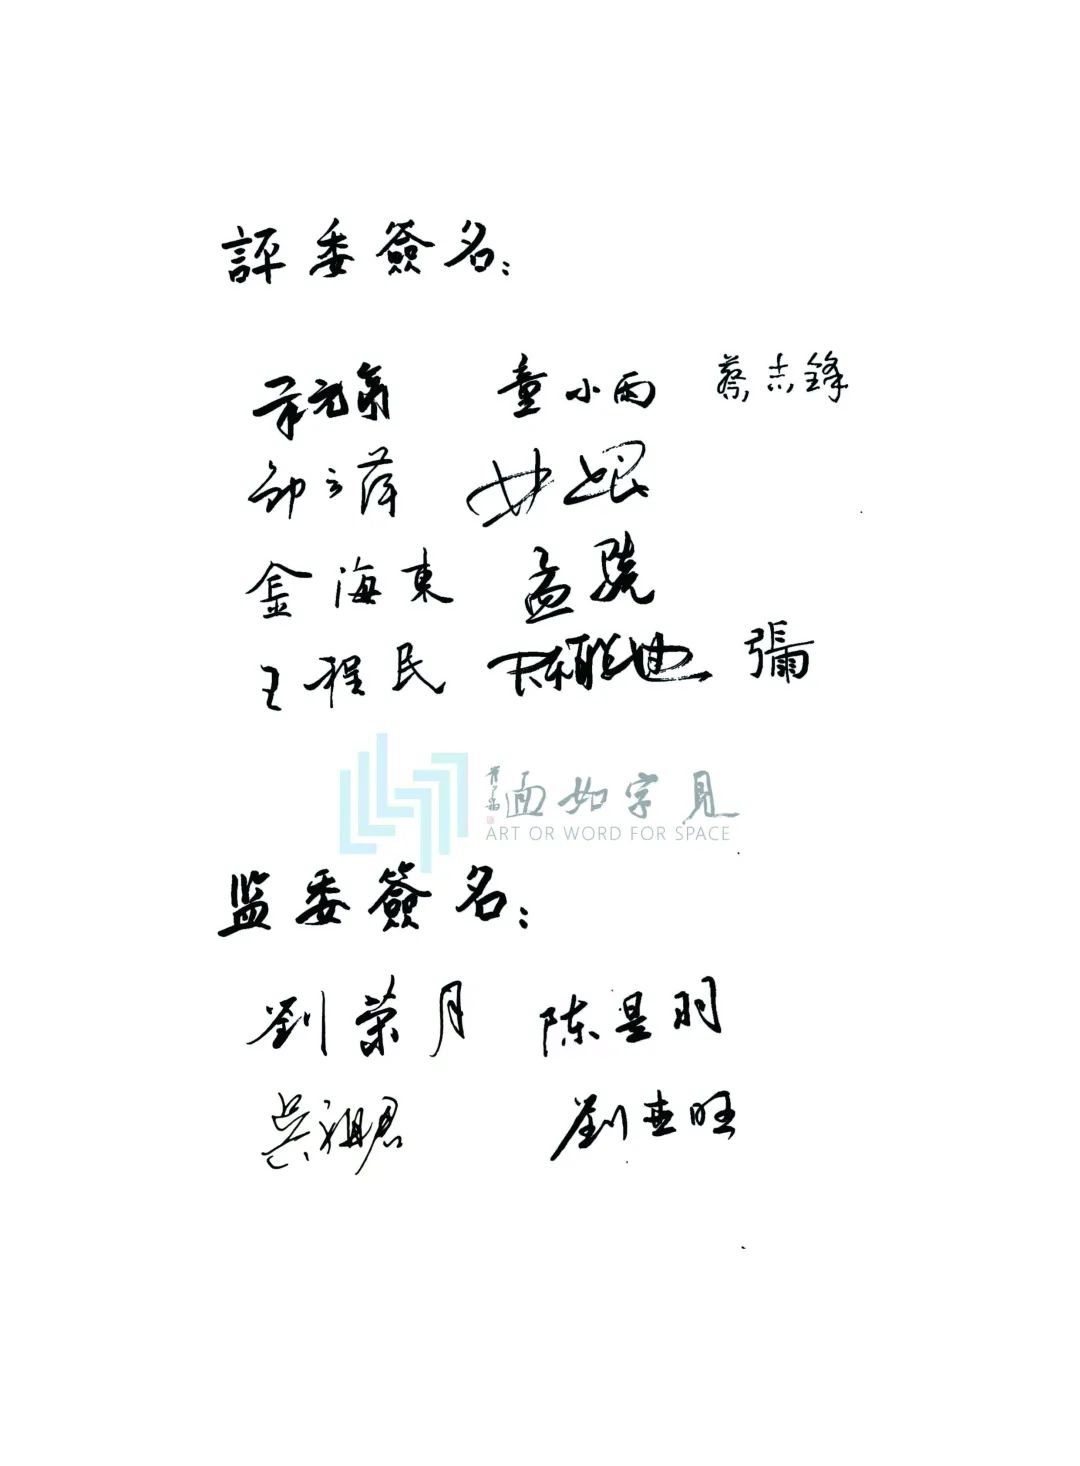 評委簽名：
童小雨 蔡志鋒
邵云萍
金海東 孟驍
王程民 彌
面如字見
ART OR WORD FOR SPACE
监委簽名：
劉荣月 陈是明
吴祖君 劉世旺